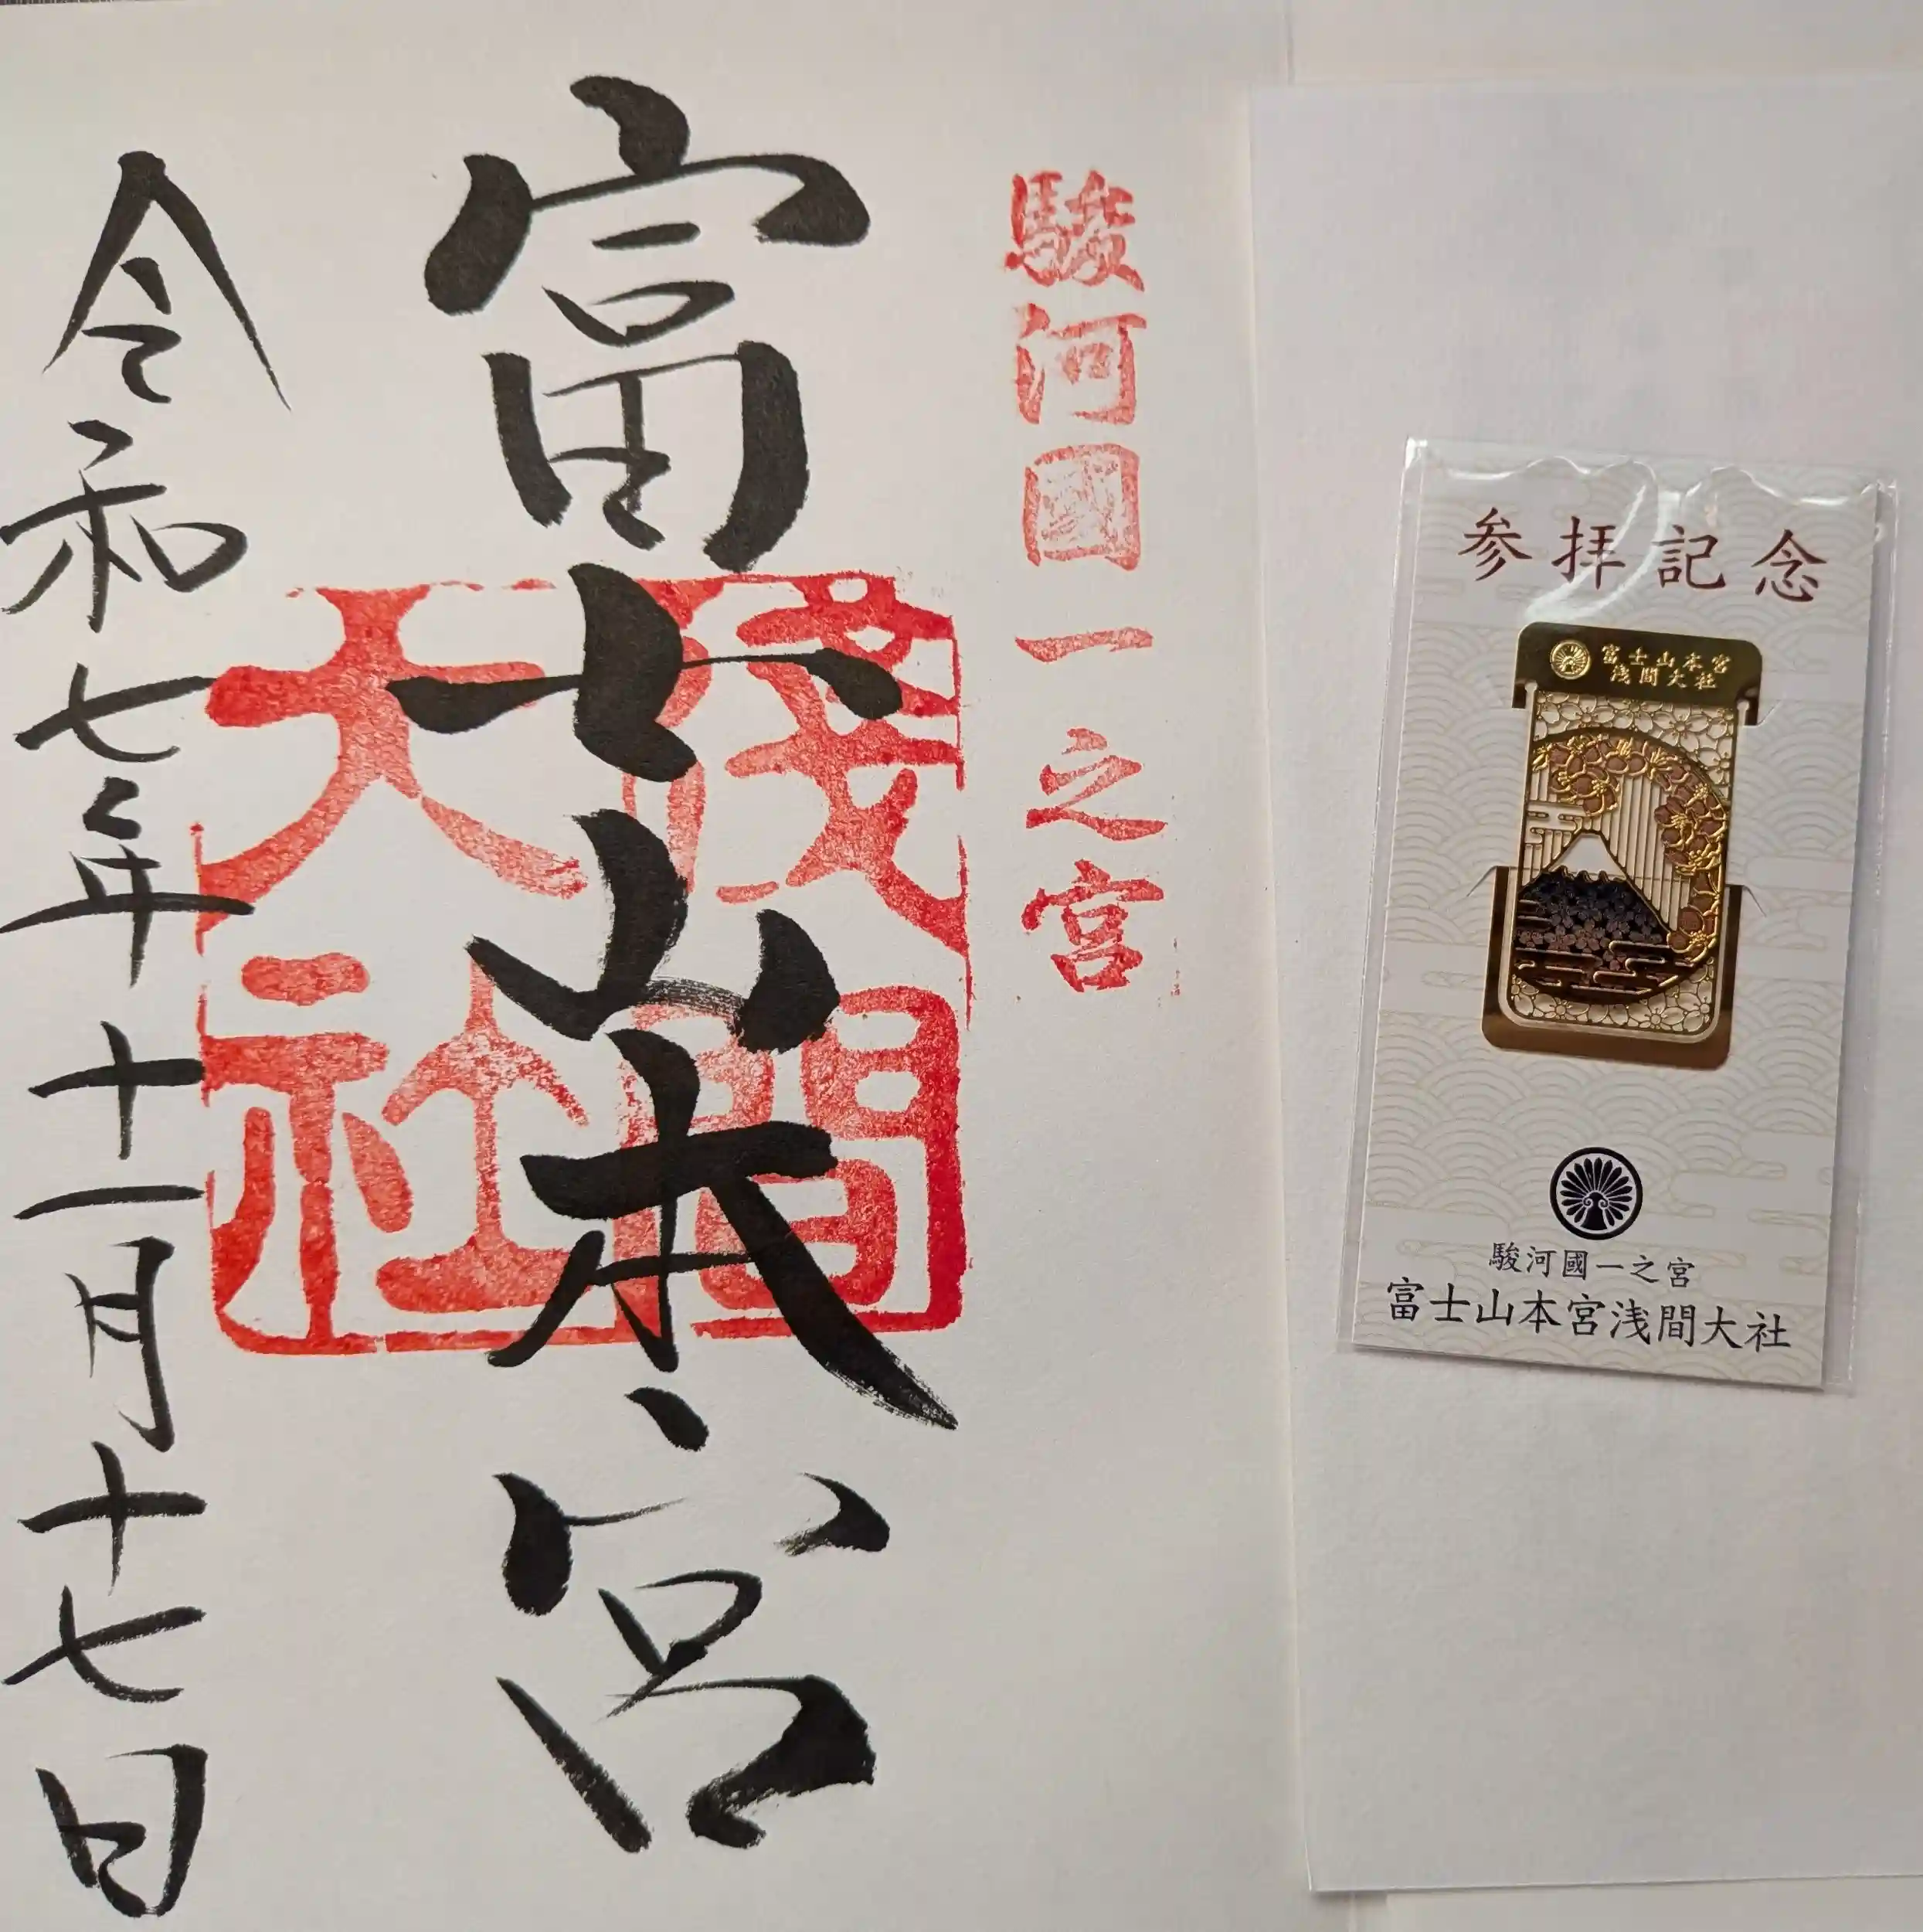 駿河國一之宮
富士山本宮
淺間
大社
令和七年十一月十七日
参拝記念
富士山本宮
浅間大社
駿河國一之宮
富士山本宮浅間大社